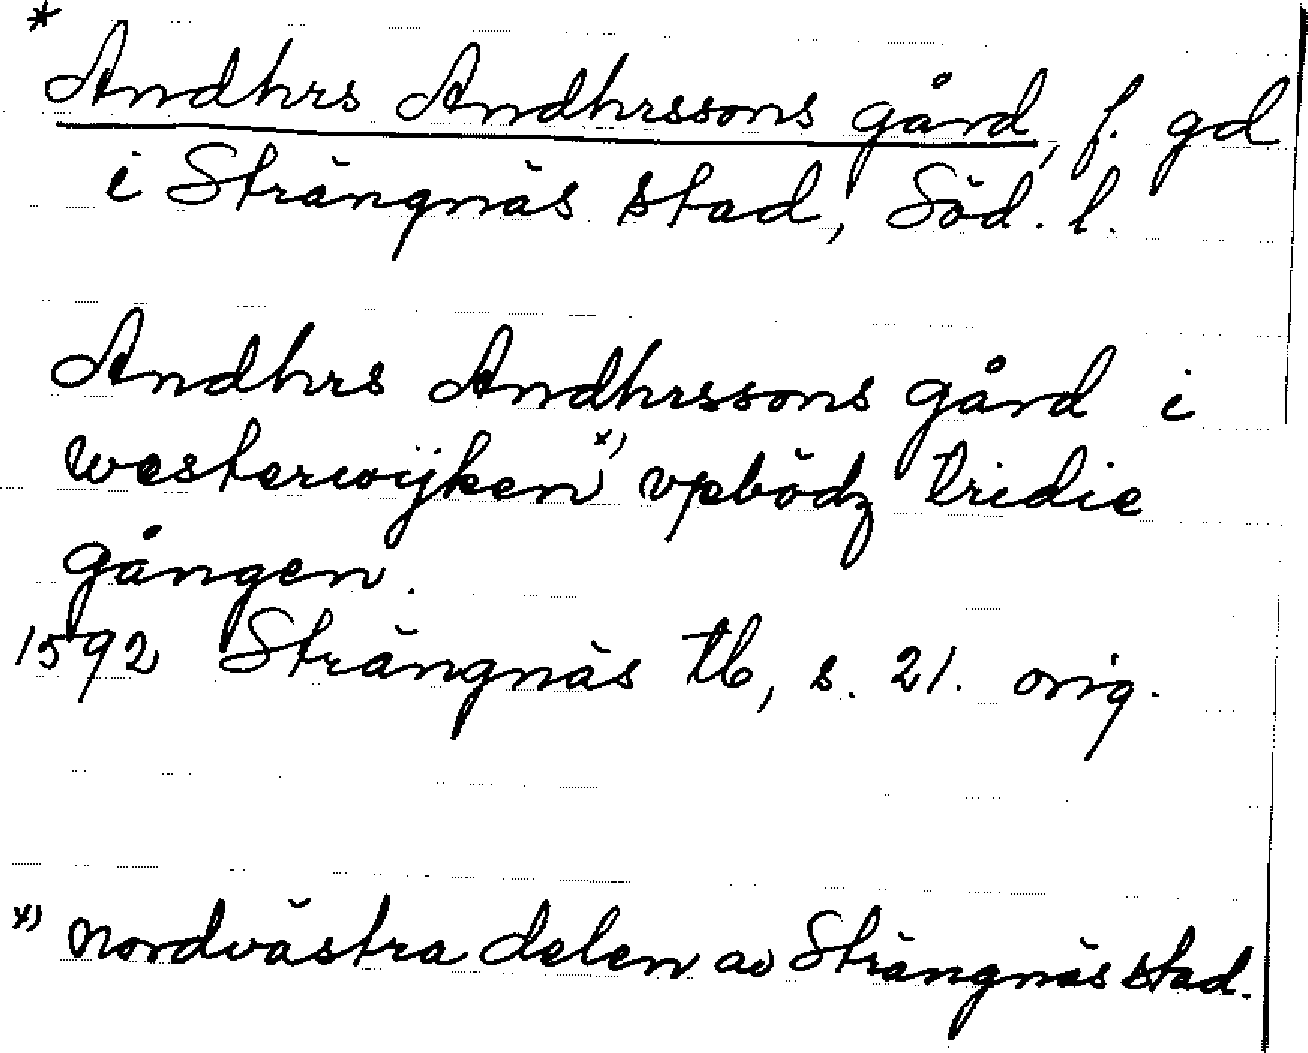 * Andhrs Andhrssons gård, f. gd
i Strängnäs stad, Söd. l.
Andhrs Andhrssons gård i
westerwijken x) vpbödz tridie
gången.
1592 Strängnäs tb, s. 21. orig.
x) nordvästra delen av Strängnäs stad.